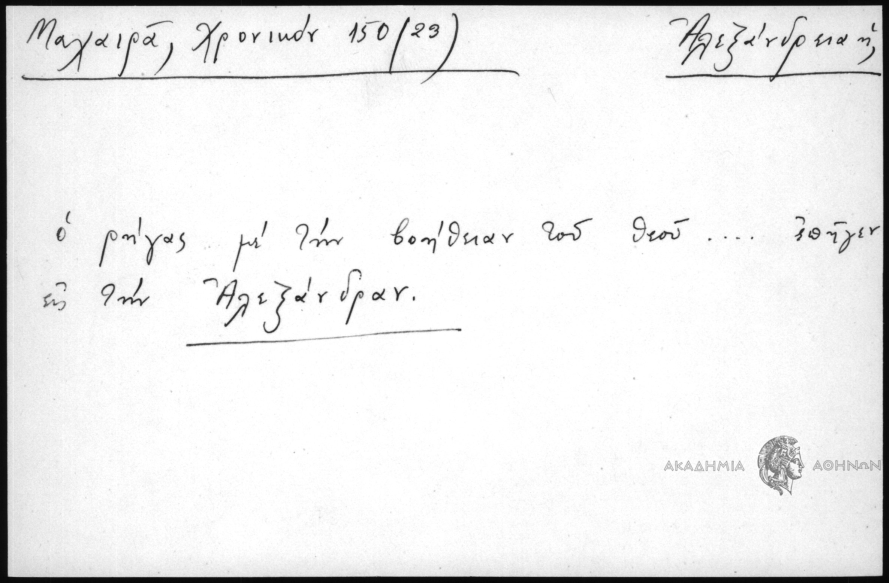 Μαχαιρᾶ, Χρονικόν 150 (23)
Ἀλεξάνδρεια ἡ,
ὁ ρήγας μὲ τὴν βοήθειαν τοῦ θεοῦ .... ἐπῆγεν
εἰς τὴν Ἀλεξάνδραν.
ΑΚΑΔΗΜΙΑ ΑΘΗΝΩΝ